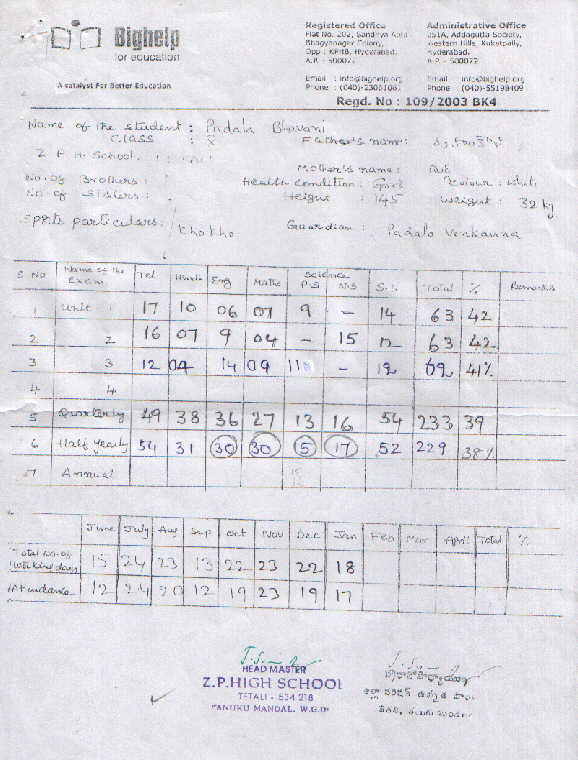 Bighelp
for education
A catalyst For Better Education
Registered Office
Flat No. 202, Sandhya
Bhagyanagar Colony,
Opp : KPHB, Hyderabad.
A.P - 500072
Email : info@bighelp.org
Phone : (040)-23061067
Administrative Office
Addagutta Society,
Western Hills, Kukatpally,
Hyderabad.
A.P - 500072
Email : info@bighelp.org
Phone : (040)-55198409
Regd. No : 109/2003 BK4
Name of the student : Padala Bhavani
CLASS : X Father's name:
Z P H School, Mother's name:
No. of Brothers : Health condition : Good Colour : white
No. of Sisters : Height : 145 weight : 32 kg
Sports particulars : Khokho Guardian : Padala Venkanna
S No Name of the Exam Tel Hindi Eng Maths Science P.S N.S S.S Total % Remarks
1 Unit 1 17 10 06 07 9 - 14 63 42
2 2 16 07 9 04 - 15 12 63 42
3 3 12 04 14 09 11 - 12 62 41%
4 4
5 Quarterly 49 38 36 27 13 16 54 233 39
6 Half yearly 54 31 30 30 5 17 52 229 38%
7 Annual
June July Aug Sep Oct Nov Dec Jan Feb Mar April Total %
Total no. of working days 15 24 23 13 22 23 22 18
Attendance 12 24 20 12 19 23 19 17
HEAD MASTER
Z.P.HIGH SCHOOL
TETALI - 534 218
TANUKU MANDAL. W.G.Dt